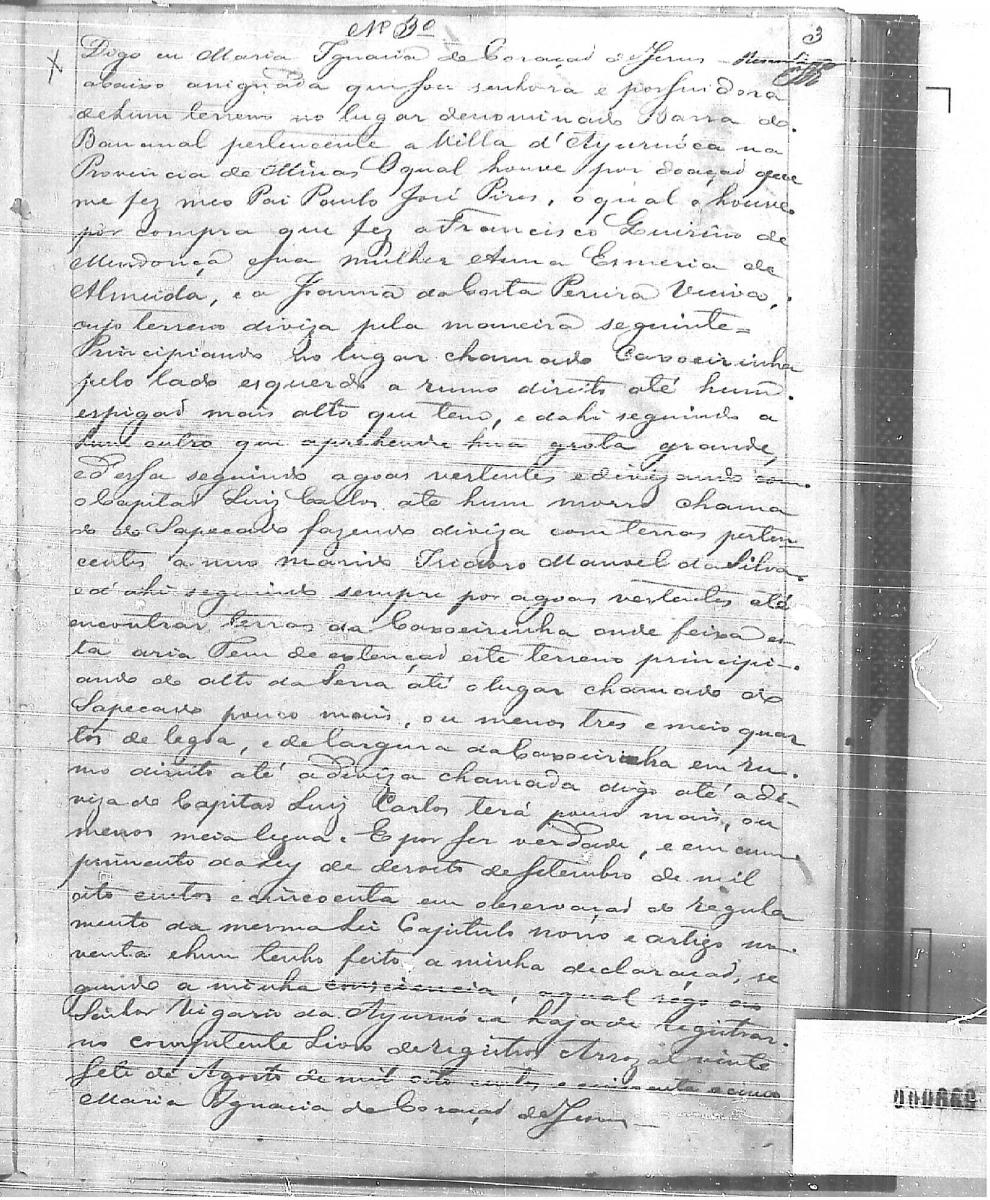 Nº 3º
3
Digo eu Maria Ignacia do Coraçaõ de Jesus
abaixo assignada que sou senhora e possuidora
de hum terreno no lugar denominado Barra do
Bananal pertencente a Villa d'Ayuruóca na
Provincia de Minas O qual houve por doaçaõ que
me fez meo Pai Paulo José Pires, o qual o houve
por compra que fez a Francisco Quirino de
Mendonça e sua mulher Anna Esmeria de
Almeida, e a Joanna da Costa Pereira Viuva,
cujo terreno diviza pela maneira seguinte =
Principiando no lugar chamado Caxoeirinha
pelo lado esquerdo a rumo direito até hum
espigaõ mais alto que tem, e dahi seguindo a
hum outro que aprehende hua grota grande,
e d'essa seguindo agoas vertentes e divizando com
o Capitaõ Luiz Carlos até hum morro chama
do do Sapecado fazendo diviza com terras perten
centes a meo marido Isidoro Manoel da Silva
e d'ahi seguindo sempre por agoas vertentes até
encontrar terras da Caxoeirinha onde feixa es
ta aria Tem de extençaõ este terreno principi-
ando do alto da Serra até o lugar chamado do
Sapecado pouco mais, ou menos tres e meio quar
tos de legoa, e de largura da Caxoeirinha em ru-
mo direito até a diviza chamada digo até a di-
viza do Capitaõ Luiz Carlos terá pouco mais, ou
menos meia legua. E por ser verdade, e em cum
primento da Ley de desoito de Setembro de mil
oito centos e cincoenta em observaçaõ do regula
mento da mesma Lei Capitulo nono e artigo no-
venta e hum tenho feito a minha declaraçaõ, se
guindo a minha consciencia, a qual rogo ao
Senhor Vigario da Ayuruóca haja de registrar
no competente Livro de registros Arrozal vinte
sete de Agosto de mil oito centos e cincoenta e cinco
Maria Ignacia do Coraçaõ de Jesus
000669